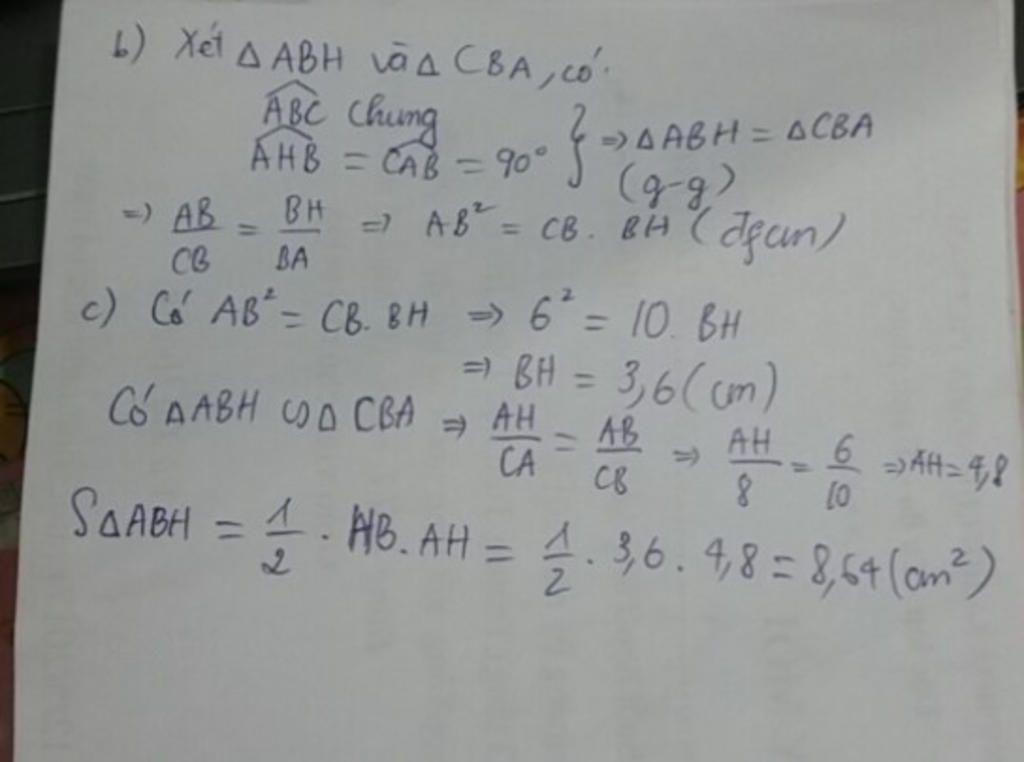 b) Xét △ABH và △CBA, có:
ABC chung
AHB = CAB = 90° } ⇒ △ABH = △CBA
(g-g)
⇒ AB/CB = BH/BA ⇒ AB² = CB. BH (đfcm)
c) Có AB² = CB. BH ⇒ 6² = 10. BH
⇒ BH = 3,6 (cm)
Có △ABH ∽ △CBA ⇒ AH/CA = AB/CB ⇒ AH/8 = 6/10 ⇒ AH = 4,8
S△ABH = 1/2 . HB. AH = 1/2 . 3,6 . 4,8 = 8,64 (cm²)